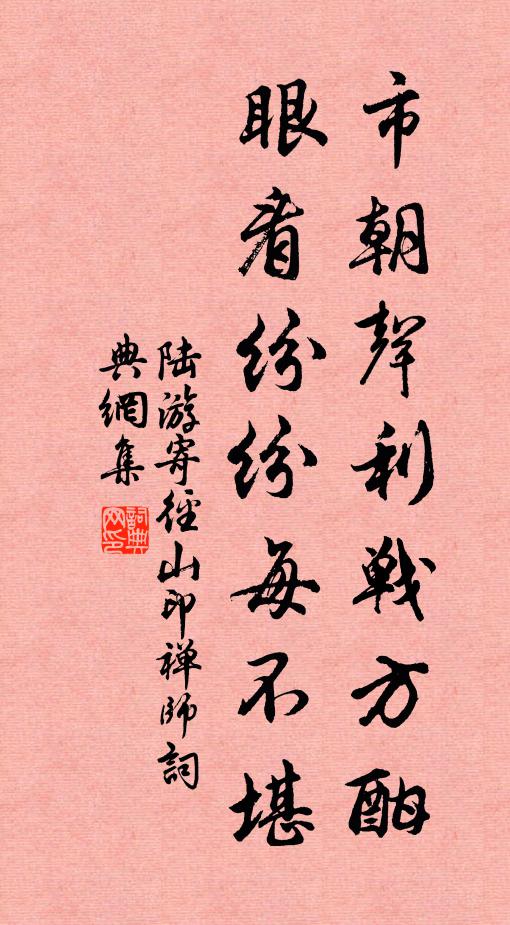 市朝聲利戰方酣
眼看紛紛每不堪
陆游寄徑山印禅师詞
典網集
詞典网印